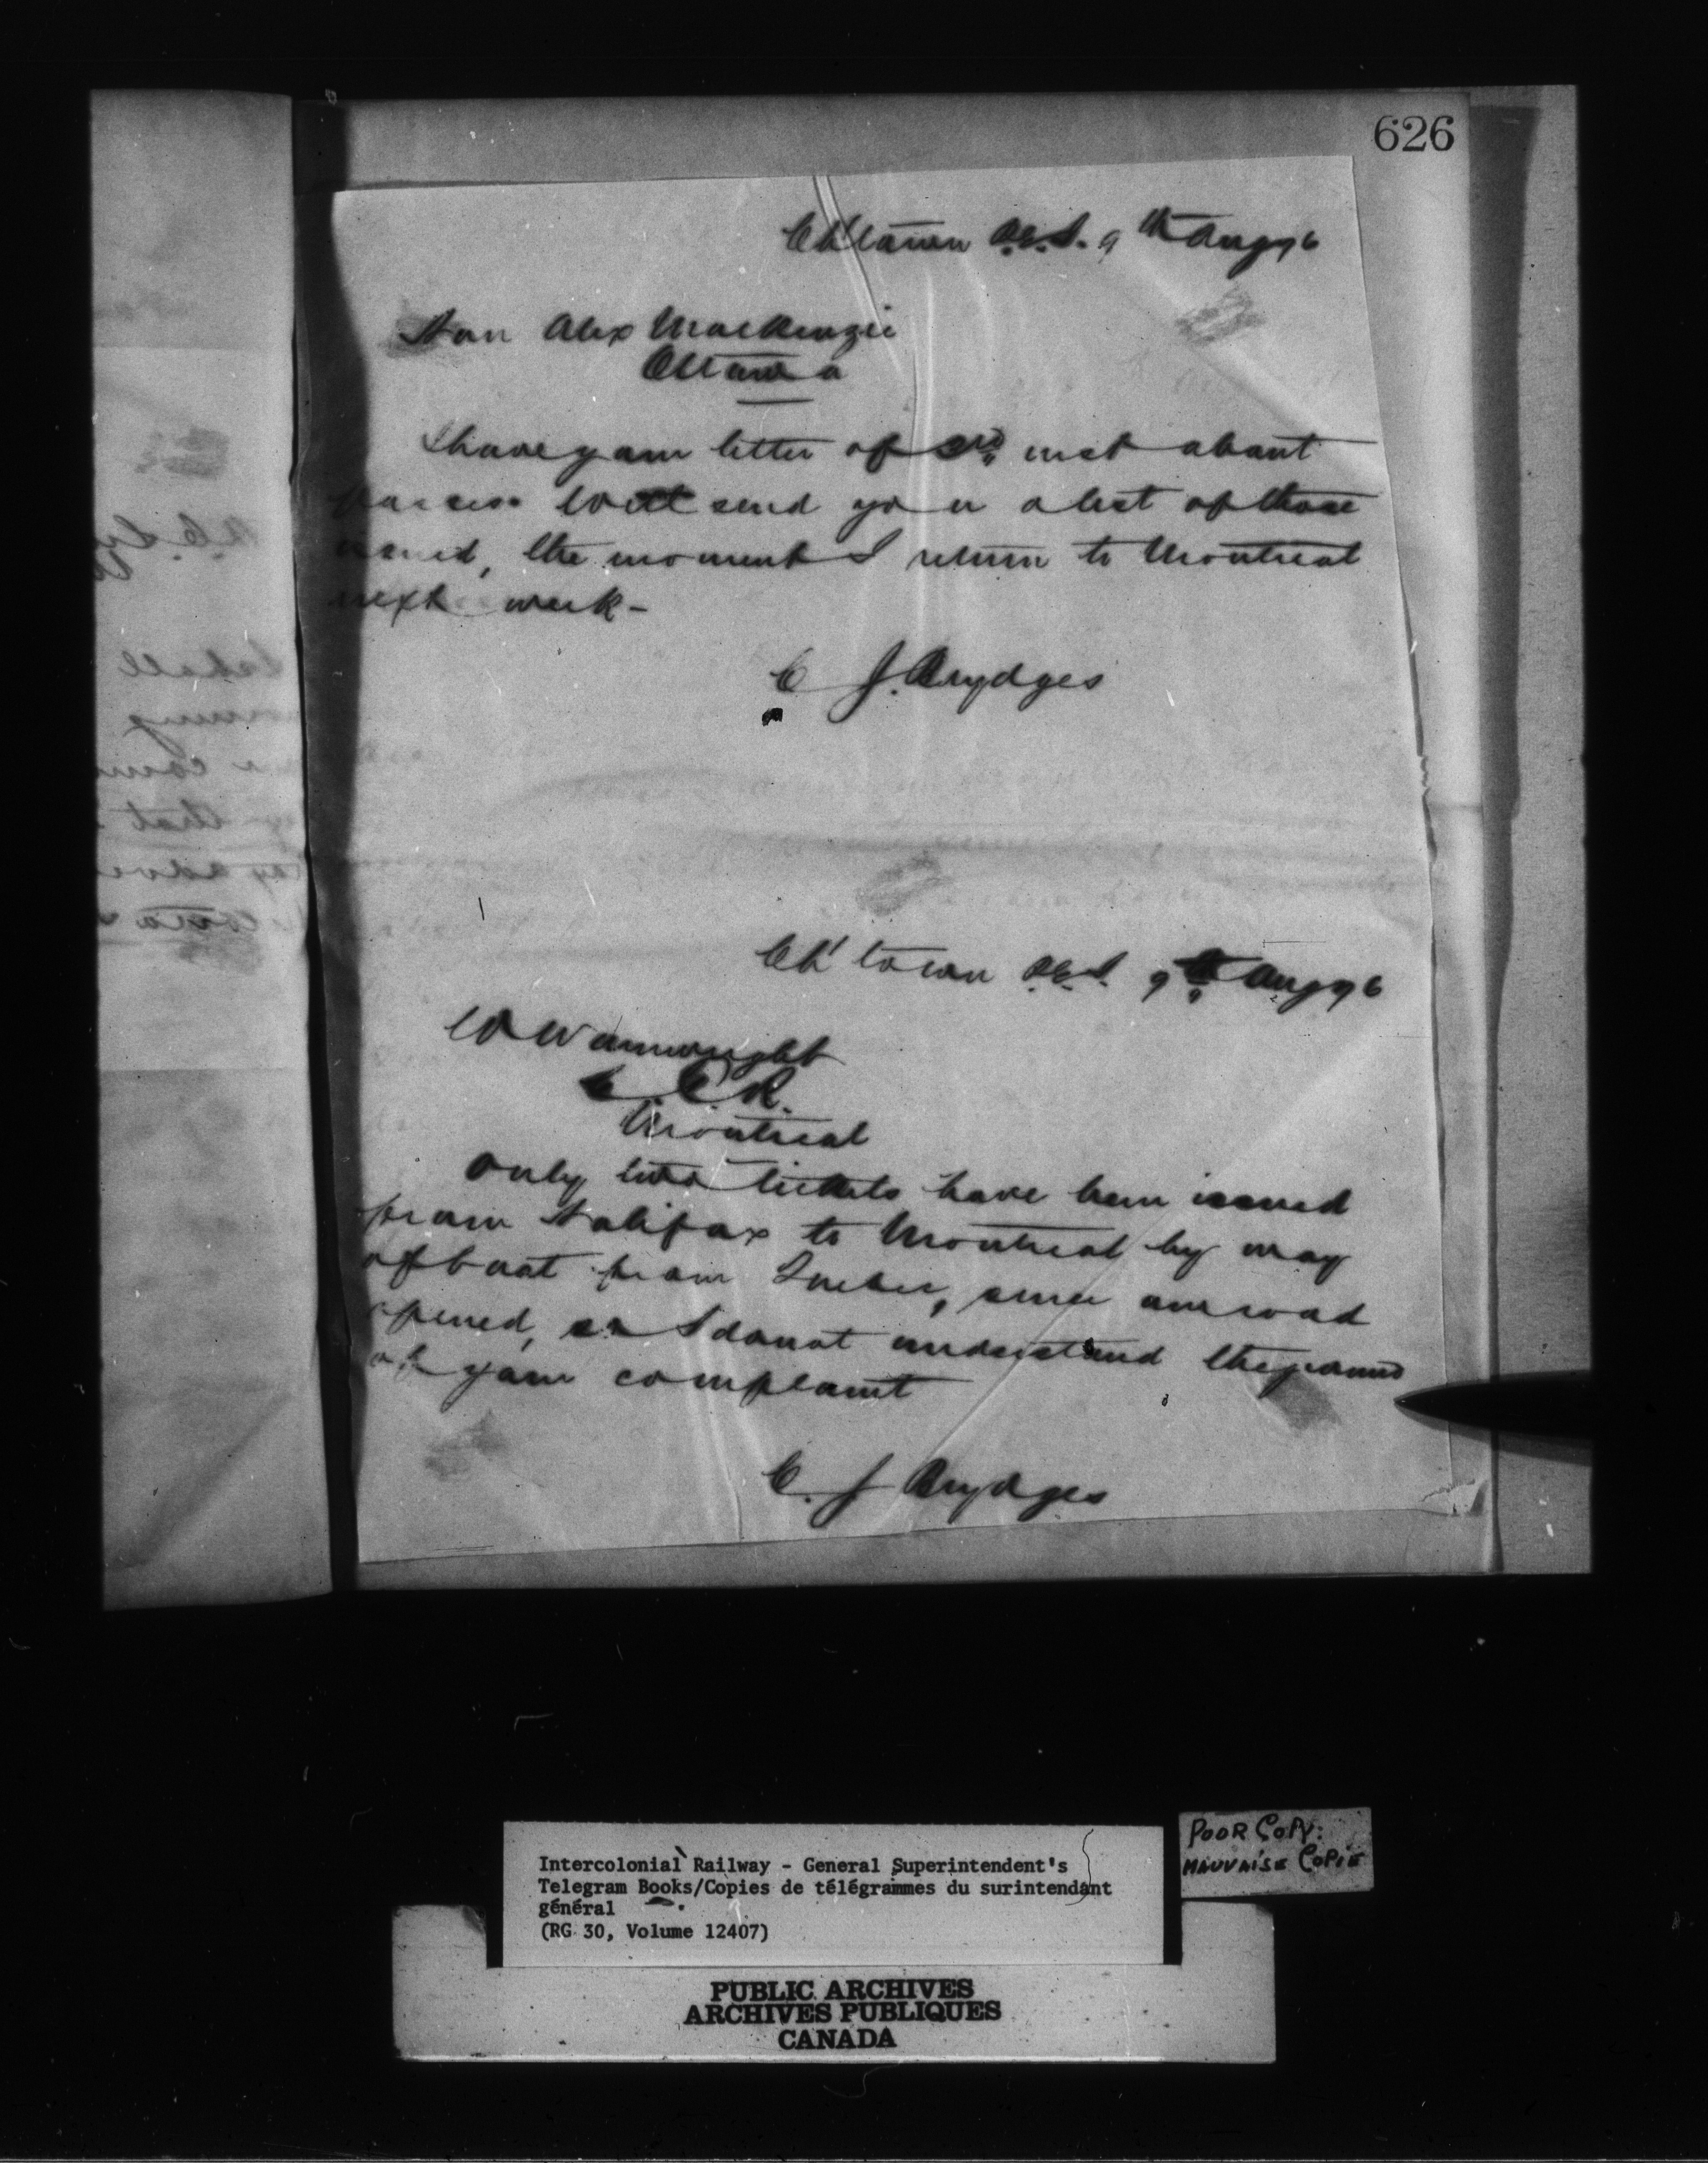 626
Ch'town P.E.I. 9th Aug 76
Hon Alex MacKenzie
Ottawa
I have your letter of 3rd inst about
passes. Will send you a list of those
issued, the moment I return to Montreal
next week -
C J. Brydges
Ch'town P.E.I. 9th Aug 76
W Wainwright
G.T.R.
Montreal
Only two tickets have been issued
from Halifax to Montreal by way
of boat from Quebec, since our road
opened, so I do not understand the ground
of your complaint
C. J Brydges
Intercolonial Railway - General Superintendent's
Telegram Books/Copies de télégrammes du surintendant
général
(RG 30, Volume 12407)
POOR COPY.
MAUVAISE COPIE
PUBLIC ARCHIVES
ARCHIVES PUBLIQUES
CANADA